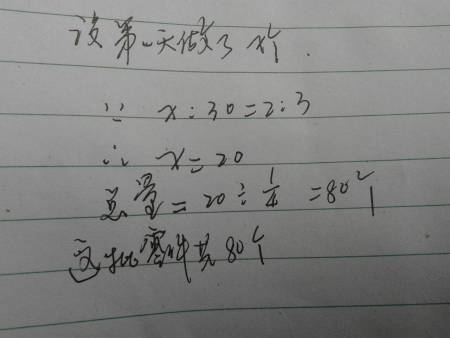 设第一天做了x个.
∵ x:30=2:3
∴ x=20
总量=20÷1/4=80个
这批零件共80个